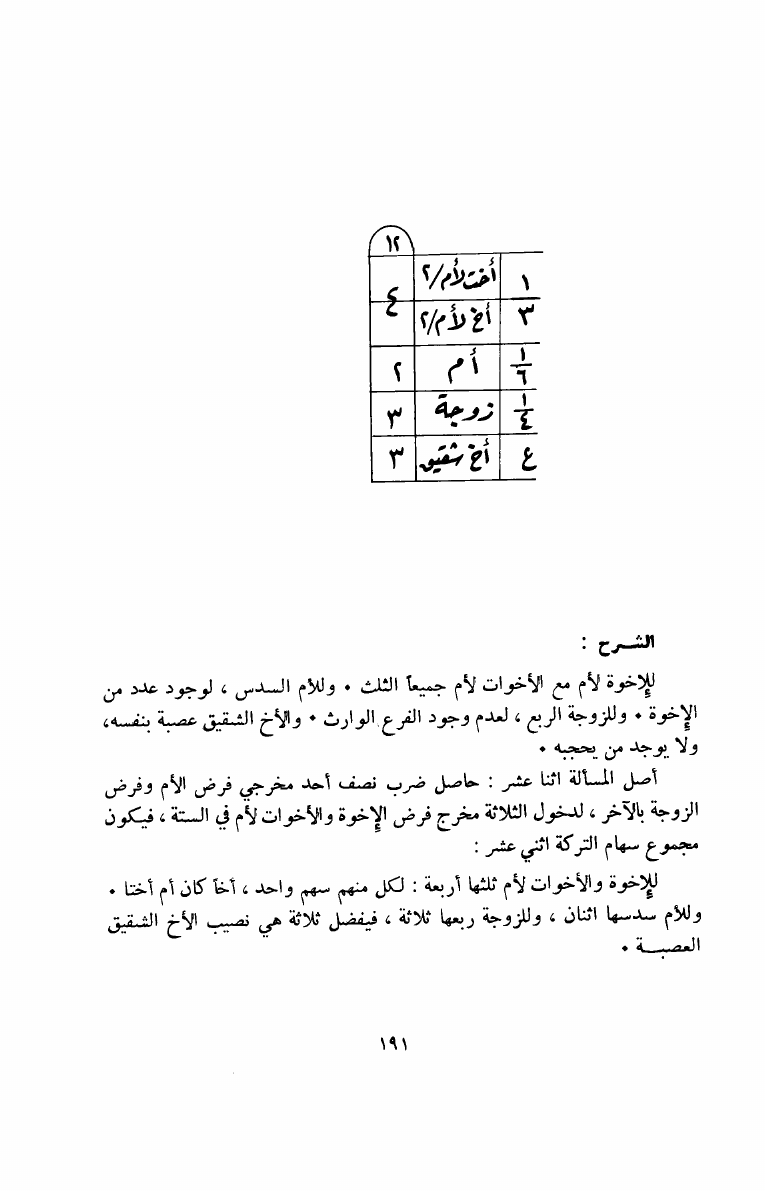 ١٢
١ أخت لأم/٢ ٤
٣ أخ لأم/٢
١/٦ أم ٢
١/٤ زوجة ٣
ع أخ شقيق ٣
الشرح :
للإخوة لأم مع الأخوات لأم جميعاً الثلث • وللأم السدس ، لوجود عدد من
الإخوة • وللزوجة الربع ، لعدم وجود الفرع الوارث • والأخ الشقيق عصبة بنفسه،
ولا يوجد من يحجبه •
أصل المسألة اثنا عشر : حاصل ضرب نصف أحد مخرجي فرض الأم وفرض
الزوجة بالآخر ، لدخول الثلاثة مخرج فرض الإخوة والأخوات لأم في الستة ، فيكون
مجموع سهام التركة اثني عشر :
للإخوة والأخوات لأم ثلثها أربعة : لكل منهم سهم واحد ، أخاً كان أم أختا •
وللأم سدسها اثنان ، وللزوجة ربعها ثلاثة ، فيفضل ثلاثة هي نصيب الأخ الشقيق
العصبة •
١٩١